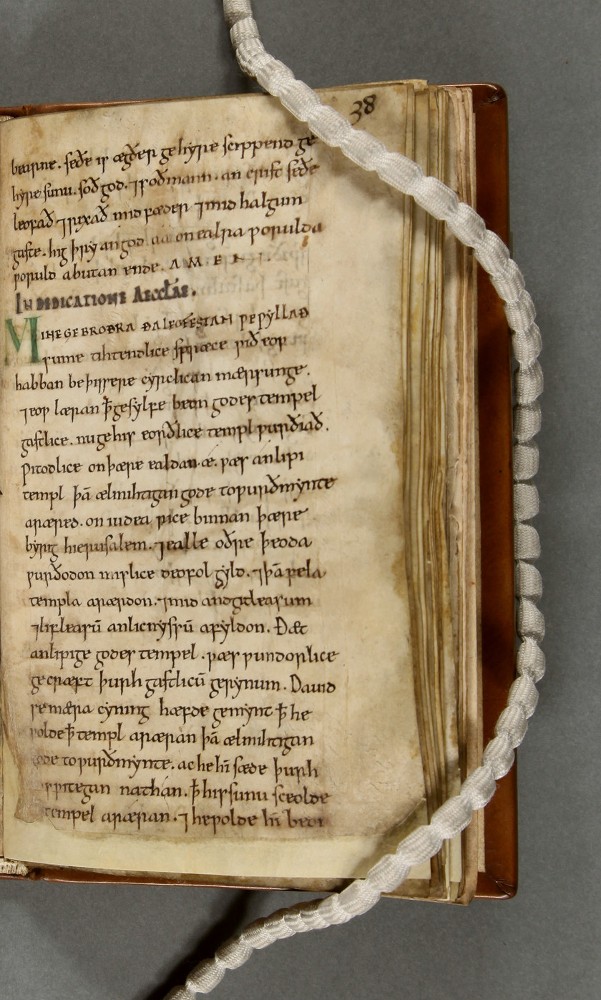 38
bearne. seðe is ægðer ge hyre scippend ge
hyre sunu. soð god. ⁊ soð mann. an crist seðe
leofað ⁊ rixað mid fæder ⁊ mid halgum
gaste. hig þry an god aa on ealra ƿorulda
ƿoruld abutan ende. AMEN.
IN DEDICATIONE AECCLẦE.
MINE GEBROÐRA ÐA LEOFESTAN ǷE ǷYLLAÐ
sume tihtendlice spræce ƿið eoƿ
habban be þissere cyrclican mærsunge.
⁊ eoƿ læran ꝥ ge sylfe beon godes tempel
gastlice. nu ge his eorðlice templ ƿurðiað.
Ƿitodlice on þære ealdan æ. ƿæs an lipi
templ þā ælmihtigan gode to ƿurðmynte
aræred. on iudea rice binnan þære
byrig hierusalem. ⁊ ealle oðre þeoda
ƿurðodon mislice deofol gyld. ⁊ þā fela
templa arærdon. ⁊ mid andgitleasum
⁊ lifleasū anlicnyssū afyldon. Ðæt
anlipige godes tempel. ƿæs ƿundorlice
gecræft þurh gastlicū gerynum. Dauid
se mæra cyning hæfde gemynt ꝥ he
ƿolde ꝥ templ aræran þā ælmihtigan
gode to ƿurðmynte. ac he hī sæde þurh
ƿitegan nathan. ꝥ his sunu sceolde
tempel aræran. ⁊ he ƿolde hī beon